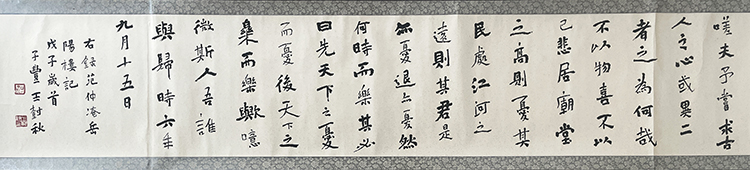 嗟夫予嘗求古
人之心或異二
者之為何哉
不以物喜不以
己悲居廟堂
之高則憂其
民處江河之
遠則其君是
無憂退亦憂然
何時而樂其必
曰先天下之憂
而憂後天下之
樂而樂歟噫
微斯人吾誰
與歸時六年
九月十五日
右錄范仲淹岳
陽樓記
戊子歲首
子豐王封秋